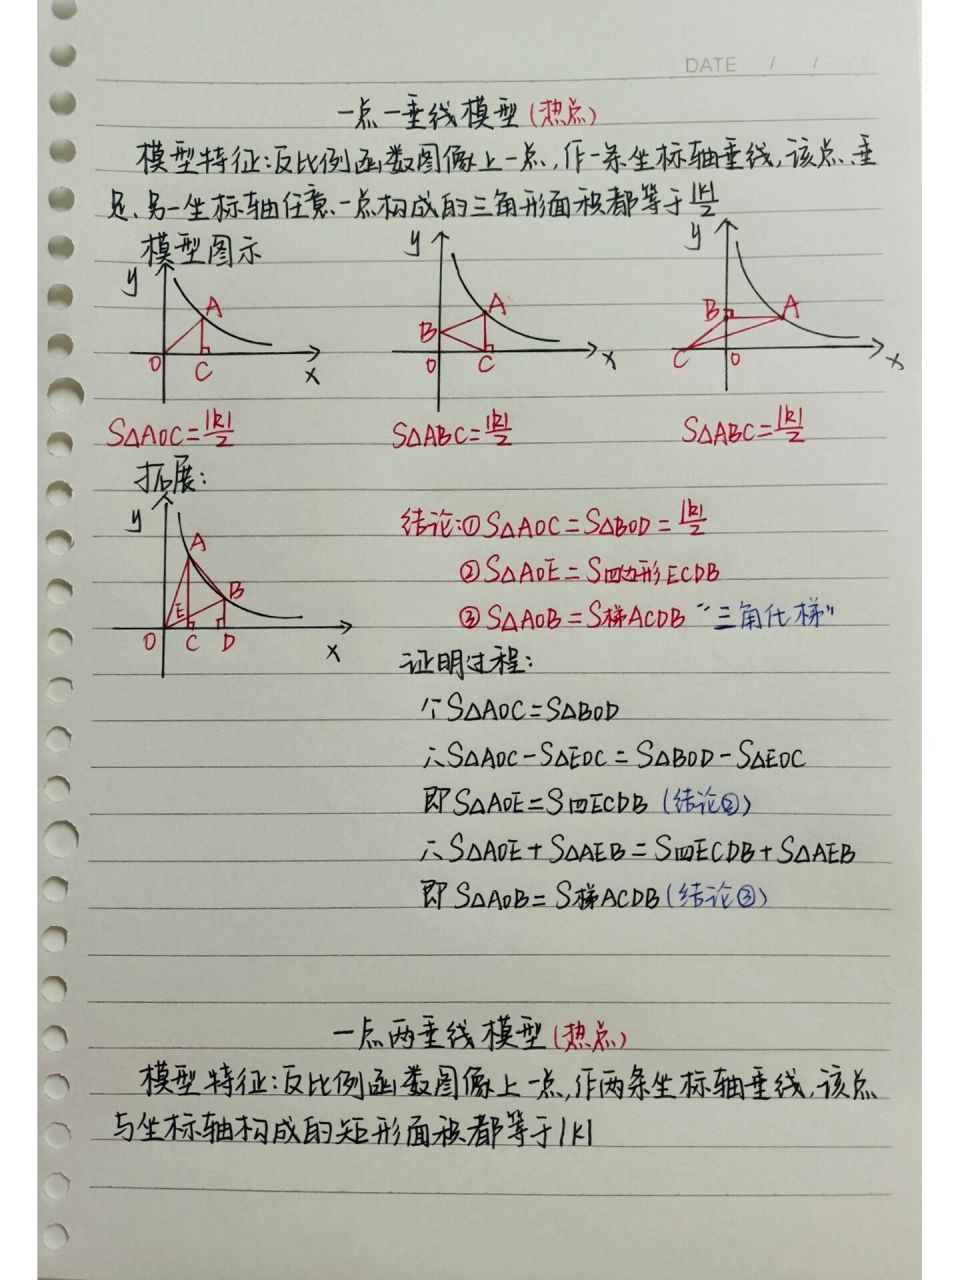 DATE / /
一点一垂线模型(热点)
模型特征:反比例函数图像上一点,作一条坐标轴垂线,该点、垂
足、另一坐标轴任意一点构成的三角形面积都等于|k|/2
模型图示
y A O C x
y A B O C x
y B A C O x
S△AOC=|k|/2 S△ABC=|k|/2 S△ABC=|k|/2
拓展:
y A B E O C D x
结论:①S△AOC=S△BOD=|k|/2
②S△AOE=S四边形ECDB
③S△AOB=S梯ACDB “三角化梯”
证明过程:
∵S△AOC=S△BOD
∴S△AOC-S△EOC=S△BOD-S△EOC
即S△AOE=S四ECDB(结论②)
∴S△AOE+S△AEB=S四ECDB+S△AEB
即S△AOB=S梯ACDB(结论③)
一点两垂线模型(热点)
模型特征:反比例函数图像上一点,作两条坐标轴垂线,该点
与坐标轴构成的矩形面积都等于|k|